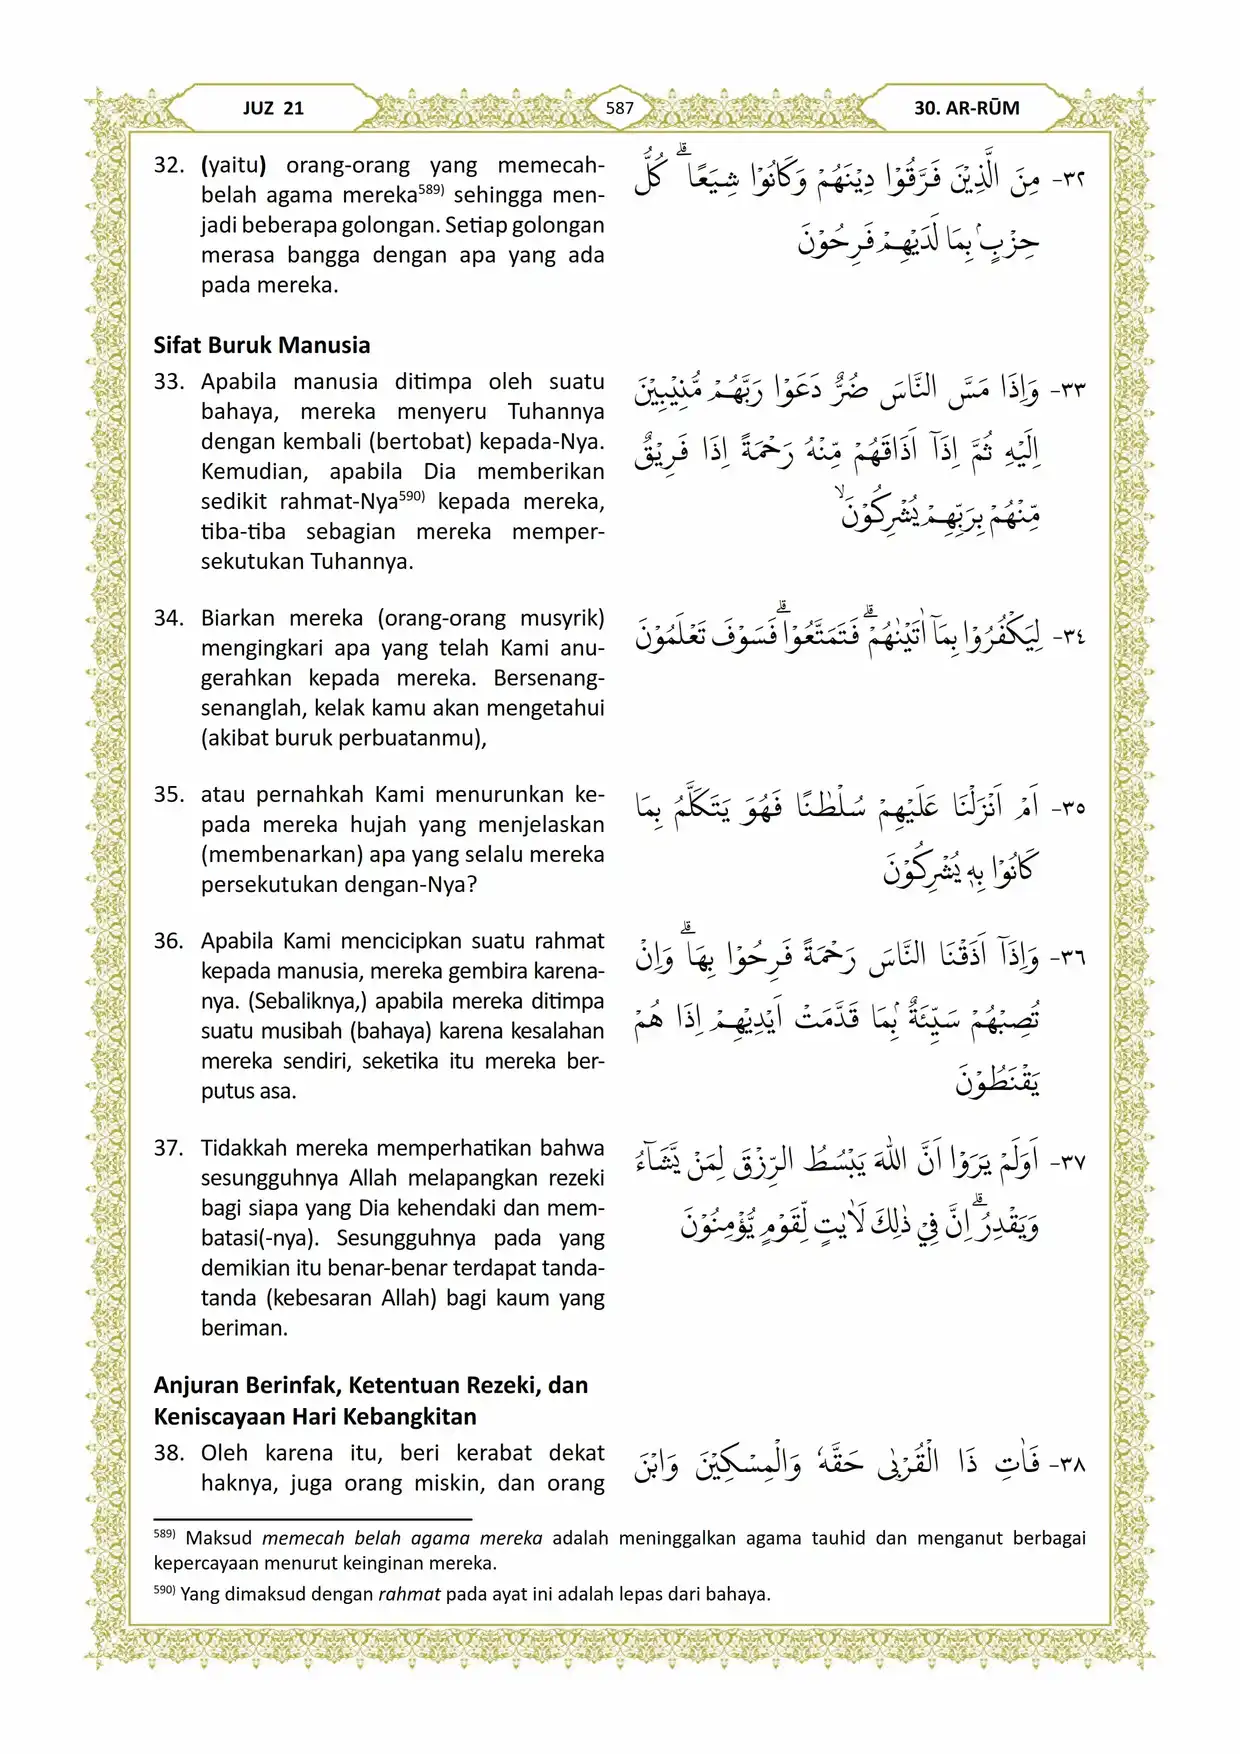 JUZ 21
587
30. AR-RŪM
32. (yaitu) orang-orang yang memecah-
belah agama mereka589) sehingga men-
jadi beberapa golongan. Setiap golongan
merasa bangga dengan apa yang ada
pada mereka.
٣٢- مِنَ الَّذِيْنَ فَرَّقُوْا دِيْنَهُمْ وَكَانُوْا شِيَعًاۗ كُلُّ
حِزْبٍۢ بِمَا لَدَيْهِمْ فَرِحُوْنَ
Sifat Buruk Manusia
33. Apabila manusia ditimpa oleh suatu
bahaya, mereka menyeru Tuhannya
dengan kembali (bertobat) kepada-Nya.
Kemudian, apabila Dia memberikan
sedikit rahmat-Nya590) kepada mereka,
tiba-tiba sebagian mereka memper-
sekutukan Tuhannya.
٣٣- وَاِذَا مَسَّ النَّاسَ ضُرٌّ دَعَوْا رَبَّهُمْ مُّنِيْبِيْنَ
اِلَيْهِ ثُمَّ اِذَآ اَذَاقَهُمْ مِّنْهُ رَحْمَةً اِذَا فَرِيْقٌ
مِّنْهُمْ بِرَبِّهِمْ يُشْرِكُوْنَۙ
34. Biarkan mereka (orang-orang musyrik)
mengingkari apa yang telah Kami anu-
gerahkan kepada mereka. Bersenang-
senanglah, kelak kamu akan mengetahui
(akibat buruk perbuatanmu),
٣٤- لِيَكْفُرُوْا بِمَآ اٰتَيْنٰهُمْۗ فَتَمَتَّعُوْاۗ فَسَوْفَ تَعْلَمُوْنَ
35. atau pernahkah Kami menurunkan ke-
pada mereka hujah yang menjelaskan
(membenarkan) apa yang selalu mereka
persekutukan dengan-Nya?
٣٥- اَمْ اَنْزَلْنَا عَلَيْهِمْ سُلْطٰنًا فَهُوَ يَتَكَلَّمُ بِمَا
كَانُوْا بِهٖ يُشْرِكُوْنَ
36. Apabila Kami mencicipkan suatu rahmat
kepada manusia, mereka gembira karena-
nya. (Sebaliknya,) apabila mereka ditimpa
suatu musibah (bahaya) karena kesalahan
mereka sendiri, seketika itu mereka ber-
putus asa.
٣٦- وَاِذَآ اَذَقْنَا النَّاسَ رَحْمَةً فَرِحُوْا بِهَاۗ وَاِنْ
تُصِبْهُمْ سَيِّئَةٌۢ بِمَا قَدَّمَتْ اَيْدِيْهِمْ اِذَا هُمْ
يَقْنَطُوْنَ
37. Tidakkah mereka memperhatikan bahwa
sesungguhnya Allah melapangkan rezeki
bagi siapa yang Dia kehendaki dan mem-
batasi(-nya). Sesungguhnya pada yang
demikian itu benar-benar terdapat tanda-
tanda (kebesaran Allah) bagi kaum yang
beriman.
٣٧- اَوَلَمْ يَرَوْا اَنَّ اللّٰهَ يَبْسُطُ الرِّزْقَ لِمَنْ يَّشَاۤءُ
وَيَقْدِرُۗ اِنَّ فِيْ ذٰلِكَ لَاٰيٰتٍ لِّقَوْمٍ يُّؤْمِنُوْنَ
Anjuran Berinfak, Ketentuan Rezeki, dan
Keniscayaan Hari Kebangkitan
38. Oleh karena itu, beri kerabat dekat
haknya, juga orang miskin, dan orang
٣٨- فَاٰتِ ذَا الْقُرْبٰى حَقَّهٗ وَالْمِسْكِيْنَ وَابْنَ
589) Maksud memecah belah agama mereka adalah meninggalkan agama tauhid dan menganut berbagai
kepercayaan menurut keinginan mereka.
590) Yang dimaksud dengan rahmat pada ayat ini adalah lepas dari bahaya.